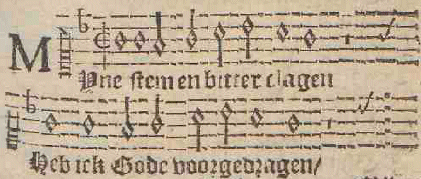 Myne stem en bitter clagen
Heb ick Gode voorgedragen/